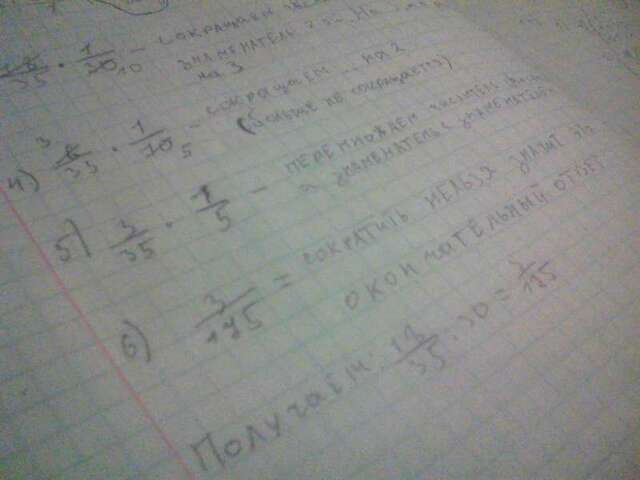 18/35 · 1/30 10 - сокращаем
знаменатель
на 3
4) 3 6/35 · 1/10 5 - сокращаем на 2
(больше не сокращается)
5) 3/35 · 1/5 - перемножаем числитель
знаменатель с знаменателем
6) 3/175 = сократить нельзя значит это
окончательный ответ
Получаем: 35 · 30 = 3/175